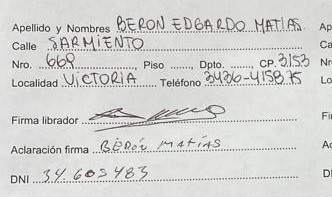 Apellido y Nombres BERON EDGARDO MATIAS
Calle SARMIENTO
Nro. 669 Piso ...... Dpto. ...... CP. 3153
Localidad VICTORIA Teléfono 3436-415875
Firma librador
Aclaración firma BERÓN MATÍAS
DNI 34.603483